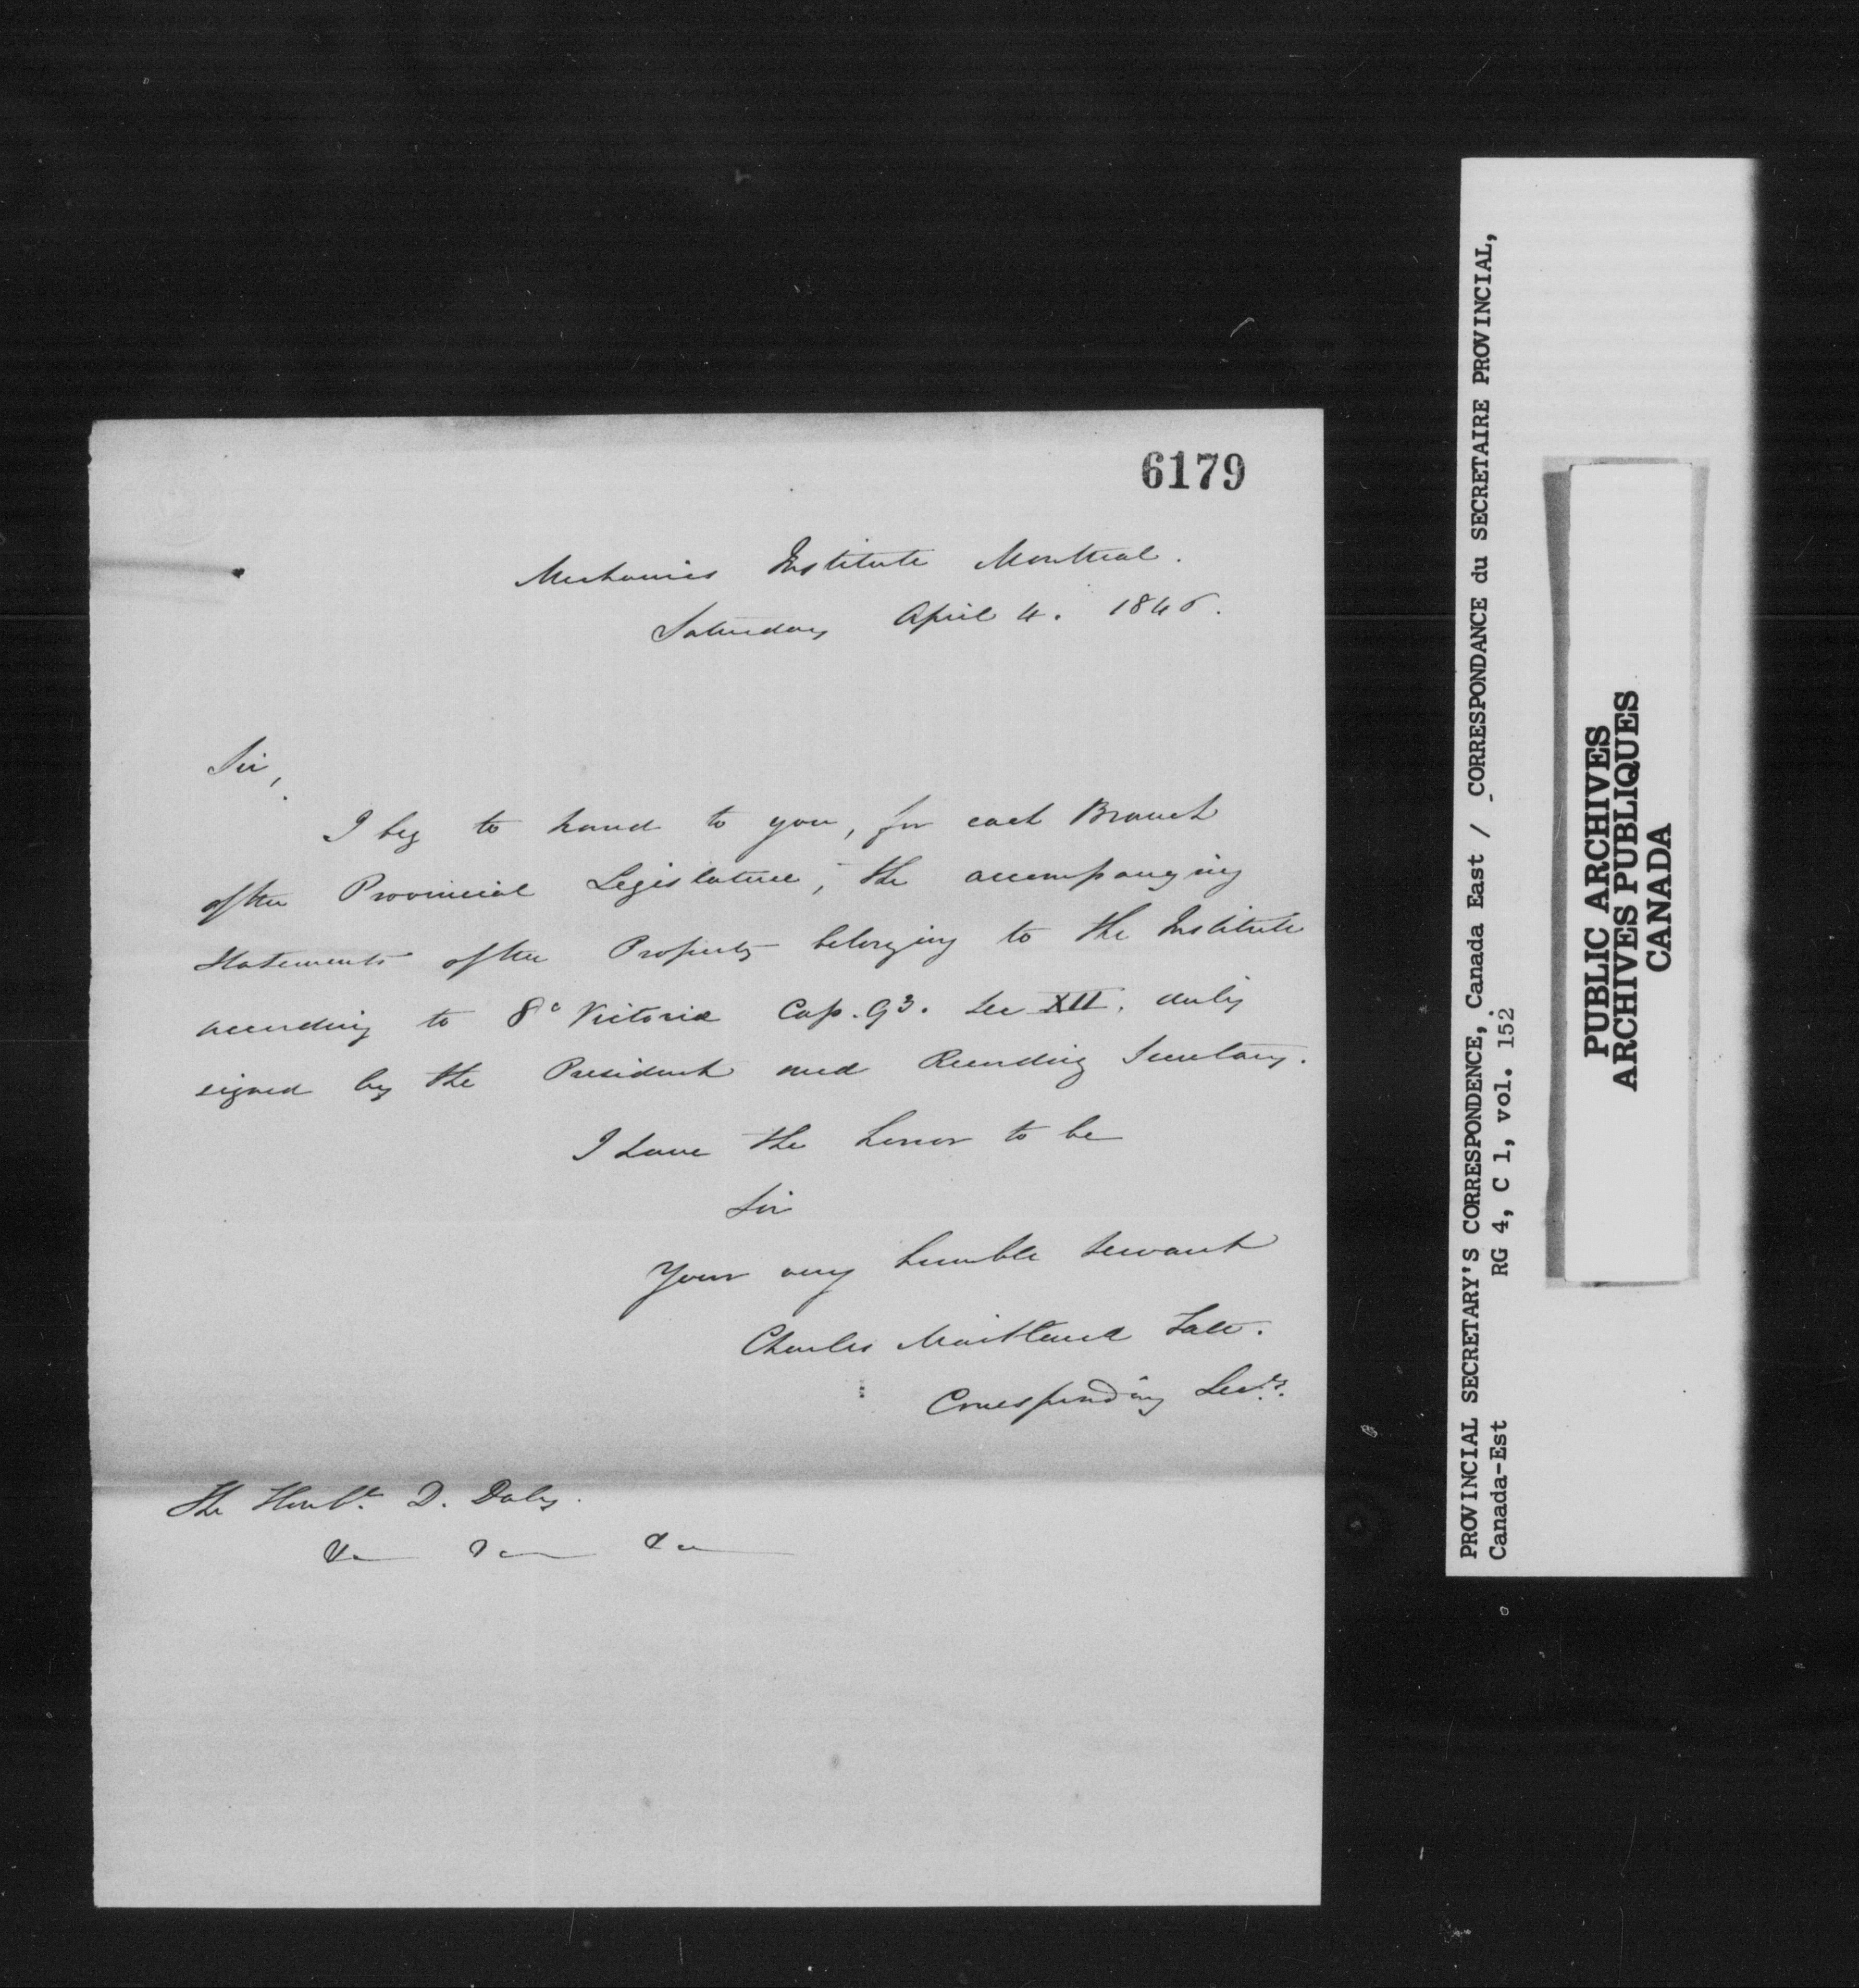 6179
Mechanics Institute Montreal.
Saturday April 4. 1846.
Sir,
I beg to hand to you, for each Branch
of the Provincial Legislature, the accompanying
Statements of the Property belonging to the Institute
according to 8º Victoria Cap. 93. Sec XII. duly
signed by the President and Recording Secretary.
I have the honor to be
Sir
Your very humble Servant
Charles Maitland Tate.
Corresponding Secry.
The Honble. D. Daly.
PROVINCIAL SECRETARY'S CORRESPONDENCE, Canada East / CORRESPONDANCE du SECRETAIRE PROVINCIAL,
Canada-Est RG 4, C 1, vol. 152
PUBLIC ARCHIVES
ARCHIVES PUBLIQUES
CANADA